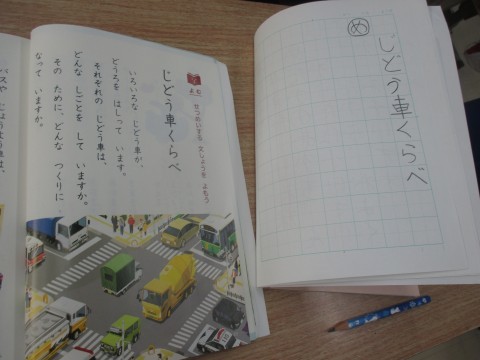 よむ
せつめいする 文しょうを よもう
じどう車くらべ
いろいろな じどう車が、
どうろを はしって います。
それぞれの じどう車は、
どんな しごとを して いますか。
その ために、どんな つくりに
なって いますか。
バスや じょうよう車は、
め
じどう車くらべ